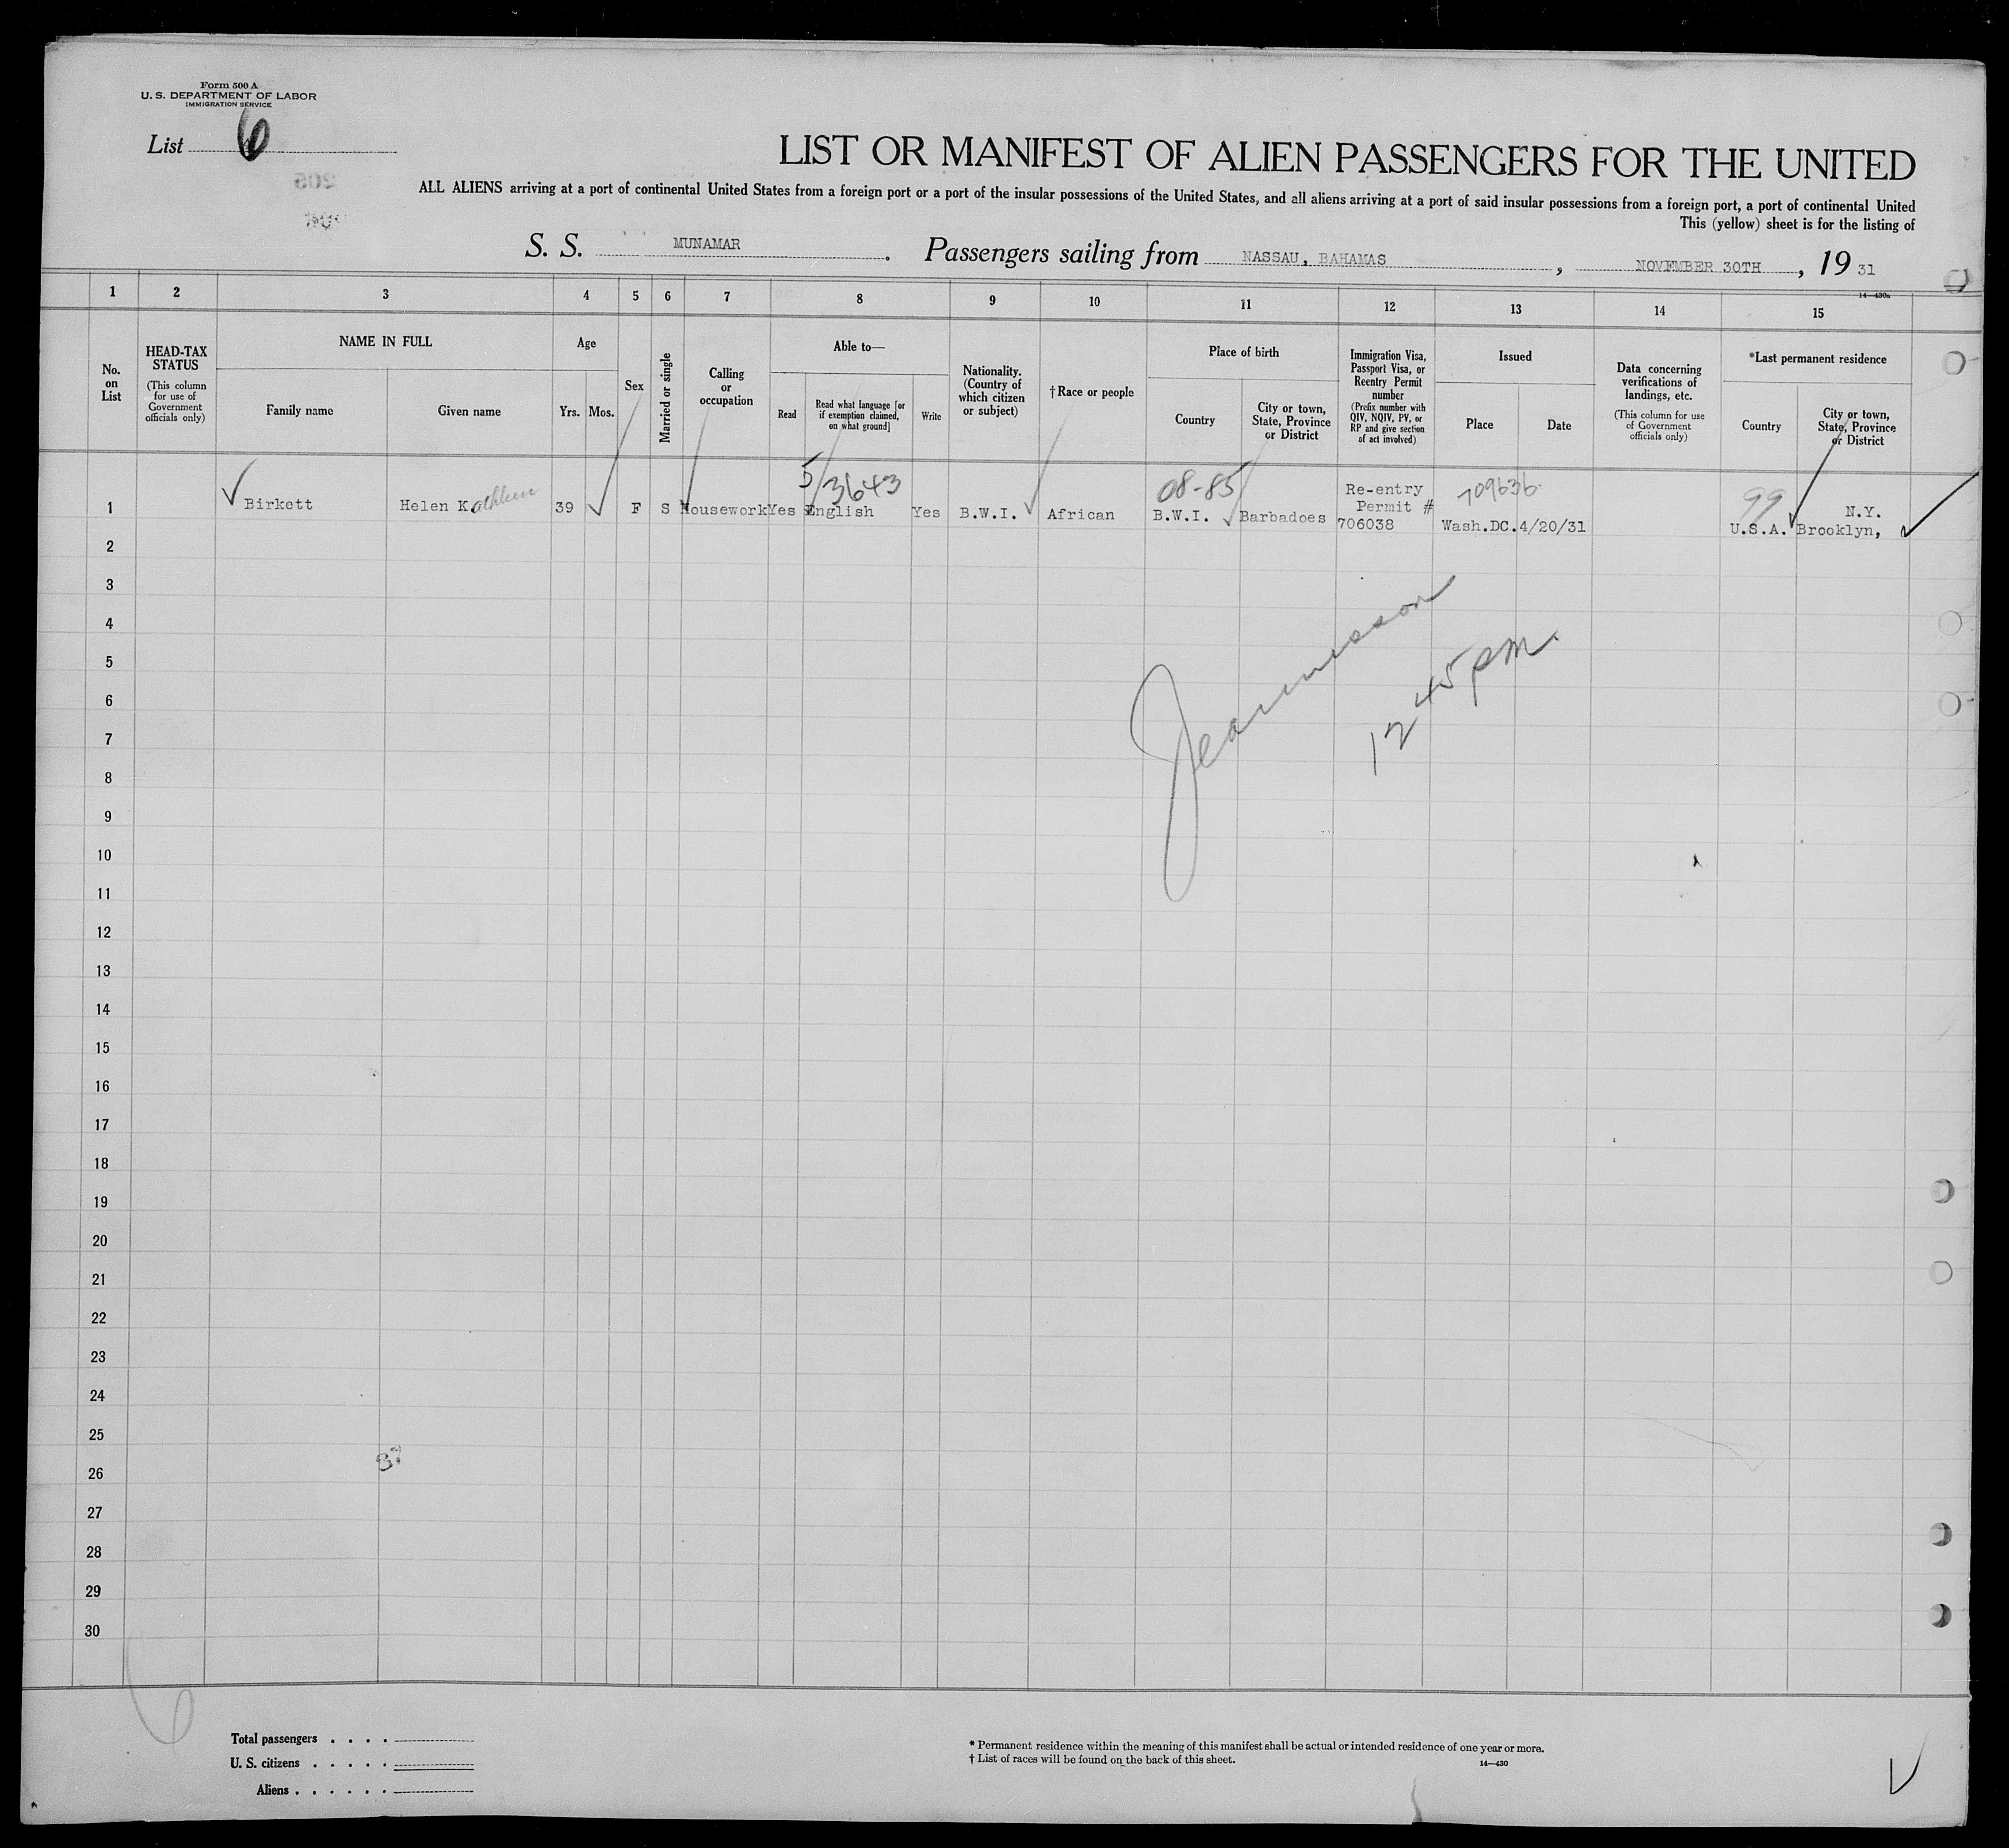 Form 500 A
U. S. DEPARTMENT OF LABOR
IMMIGRATION SERVICE
List 6
LIST OR MANIFEST OF ALIEN PASSENGERS FOR THE UNITED
ALL ALIENS arriving at a port of continental United States from a foreign port or a port of the insular possessions of the United States, and all aliens arriving at a port of said insular possessions from a foreign port, a port of continental United
This (yellow) sheet is for the listing of
S. S. MUNAMAR. Passengers sailing from NASSAU, BAHAMAS, NOVEMBER 30TH, 19 31
14—430a
1 2 3 4 5 6 7 8 9 10 11 12 13 14 15
No. on List
HEAD-TAX STATUS
(This column for use of Government officials only)
NAME IN FULL
Family name
Given name
Age
Yrs. Mos.
Sex
Married or single
Calling or occupation
Able to—
Read
Read what language [or if exemption claimed, on what ground]
Write
Nationality. (Country of which citizen or subject)
† Race or people
Place of birth
Country
City or town, State, Province or District
Immigration Visa, Passport Visa, or Reentry Permit number
(Prefix number with QIV, NQIV, PV, or RP and give section of act involved)
Issued
Place
Date
Data concerning verifications of landings, etc.
(This column for use of Government officials only)
*Last permanent residence
Country
City or town, State, Province or District
5/3643 08-85 Re-entry 709636 99
1 Birkett Helen K.athleen 39 F S Housework Yes English Yes B.W.I. African B.W.I. Barbadoes Permit # N.Y.
706038 Wash.DC. 4/20/31 U.S.A. Brooklyn,
2
3
4
5
6
7
8
9
10
11
12
13
14
15
16
17
18
19
20
21
22
23
24
25
26
27
28
29
30
12 45 pm.
6
Total passengers . . . .
U. S. citizens . . . . .
Aliens . . . . . .
* Permanent residence within the meaning of this manifest shall be actual or intended residence of one year or more.
† List of races will be found on the back of this sheet.
14—430